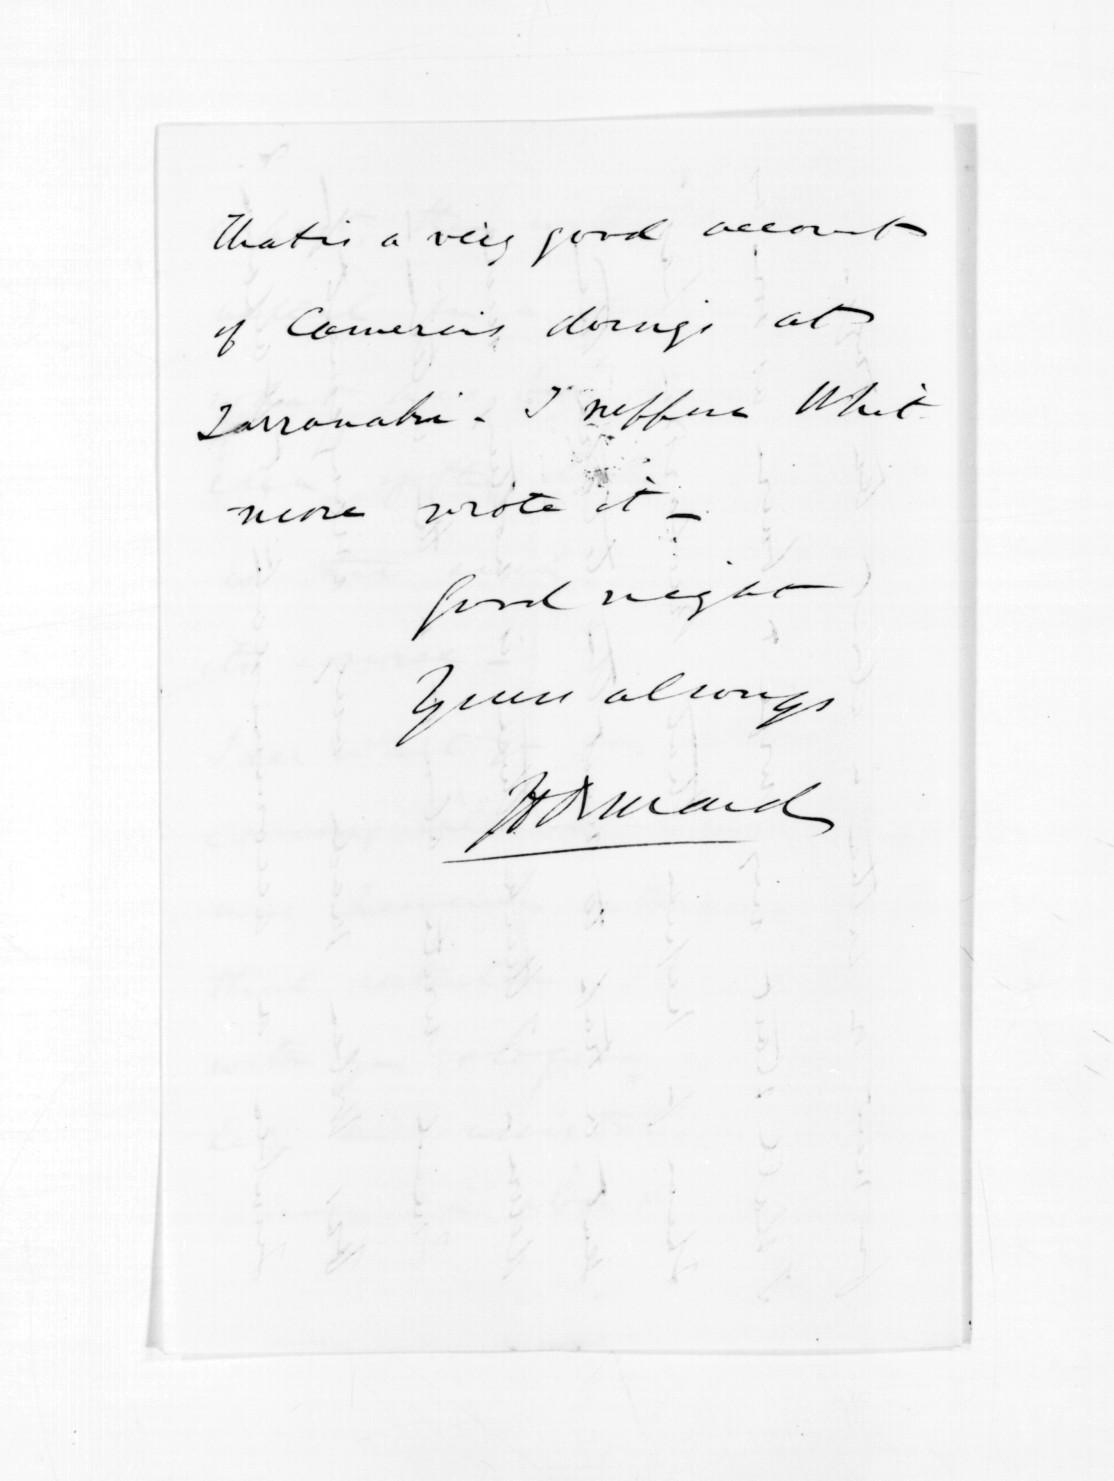 That is a very good account
of Camerons doings at
Tarranaki - I suppose Whit
more wrote it -
Good night
Yours always